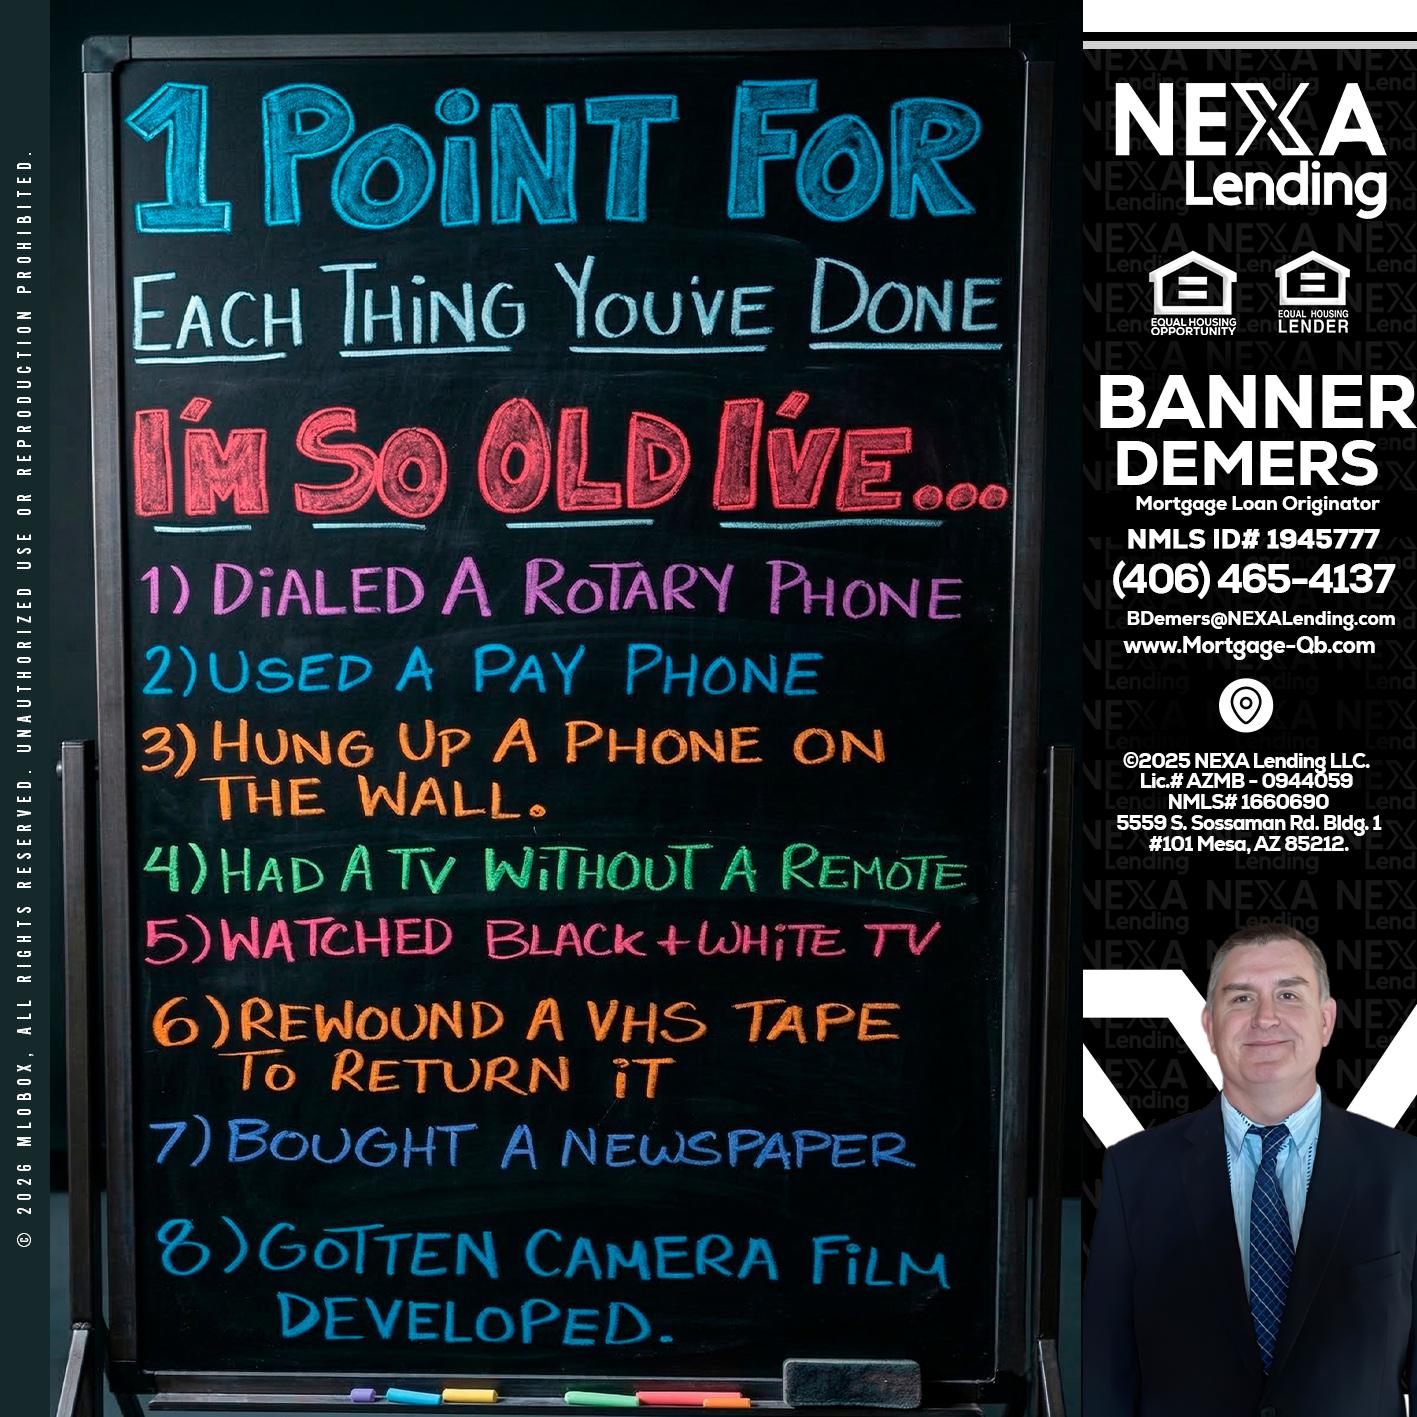 1 POINT FOR
EACH THING YOU'VE DONE
I'M SO OLD I'VE...
1) DIALED A ROTARY PHONE
2) USED A PAY PHONE
3) HUNG UP A PHONE ON
THE WALL.
4) HAD A TV WITHOUT A REMOTE
5) WATCHED BLACK + WHITE TV
6) REWOUND A VHS TAPE
TO RETURN IT
7) BOUGHT A NEWSPAPER
8) GOTTEN CAMERA FILM
DEVELOPED.
NEXA
Lending
EQUAL HOUSING
OPPORTUNITY
EQUAL HOUSING
LENDER
BANNER
DEMERS
Mortgage Loan Originator
NMLS ID# 1945777
(406) 465-4137
BDemers@NEXALending.com
www.Mortgage-Qb.com
©2025 NEXA Lending LLC.
Lic.# AZMB - 0944059
NMLS# 1660690
5559 S. Sossaman Rd. Bldg. 1
#101 Mesa, AZ 85212.
© 2026 MLOBOX, ALL RIGHTS RESERVED. UNAUTHORIZED USE OR REPRODUCTION PROHIBITED.